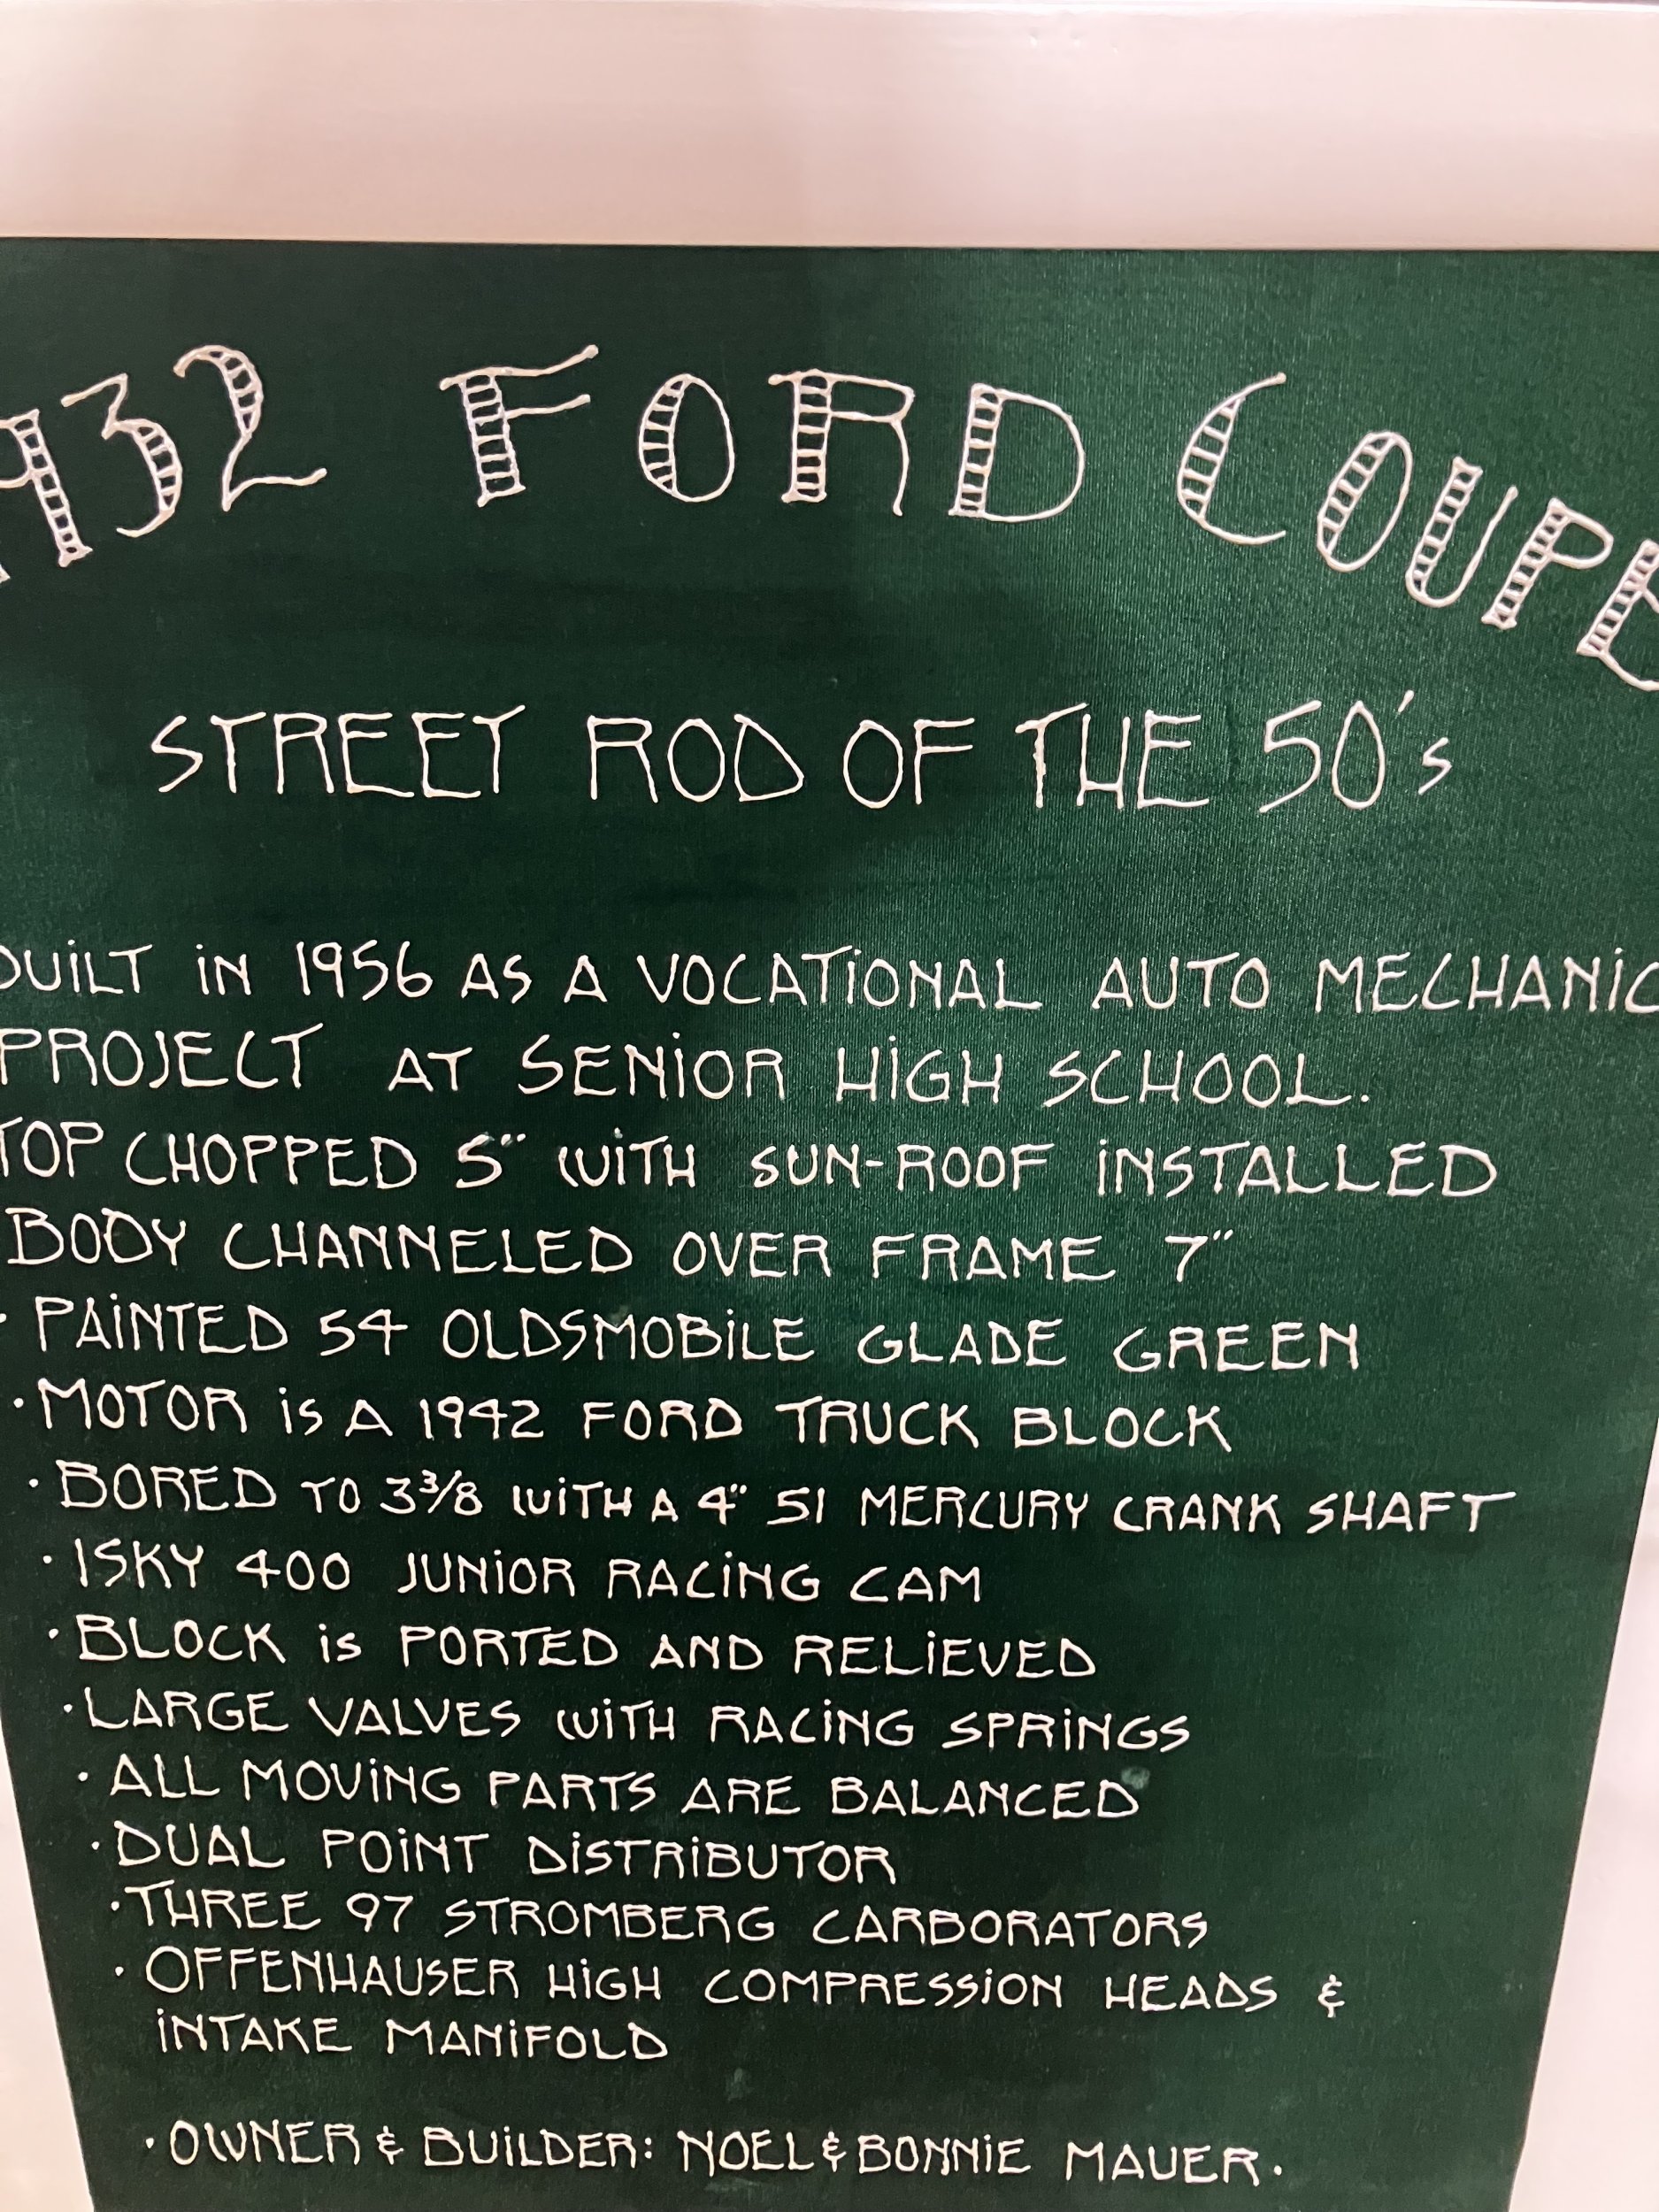 1932 FORD COUPE
STREET ROD OF THE 50's
BUILT IN 1956 AS A VOCATIONAL AUTO MECHANIC
PROJECT AT SENIOR HIGH SCHOOL.
TOP CHOPPED 5" WITH SUN-ROOF INSTALLED
BODY CHANNELED OVER FRAME 7"
· PAINTED 54 OLDSMOBILE GLADE GREEN
· MOTOR IS A 1942 FORD TRUCK BLOCK
· BORED TO 3 3/8 WITH A 4" 51 MERCURY CRANK SHAFT
· ISKY 400 JUNIOR RACING CAM
· BLOCK IS PORTED AND RELIEVED
· LARGE VALVES WITH RACING SPRINGS
· ALL MOVING PARTS ARE BALANCED
· DUAL POINT DISTRIBUTOR
· THREE 97 STROMBERG CARBORATORS
· OFFENHAUSER HIGH COMPRESSION HEADS &
INTAKE MANIFOLD
· OWNER & BUILDER: NOEL & BONNIE MAUER.